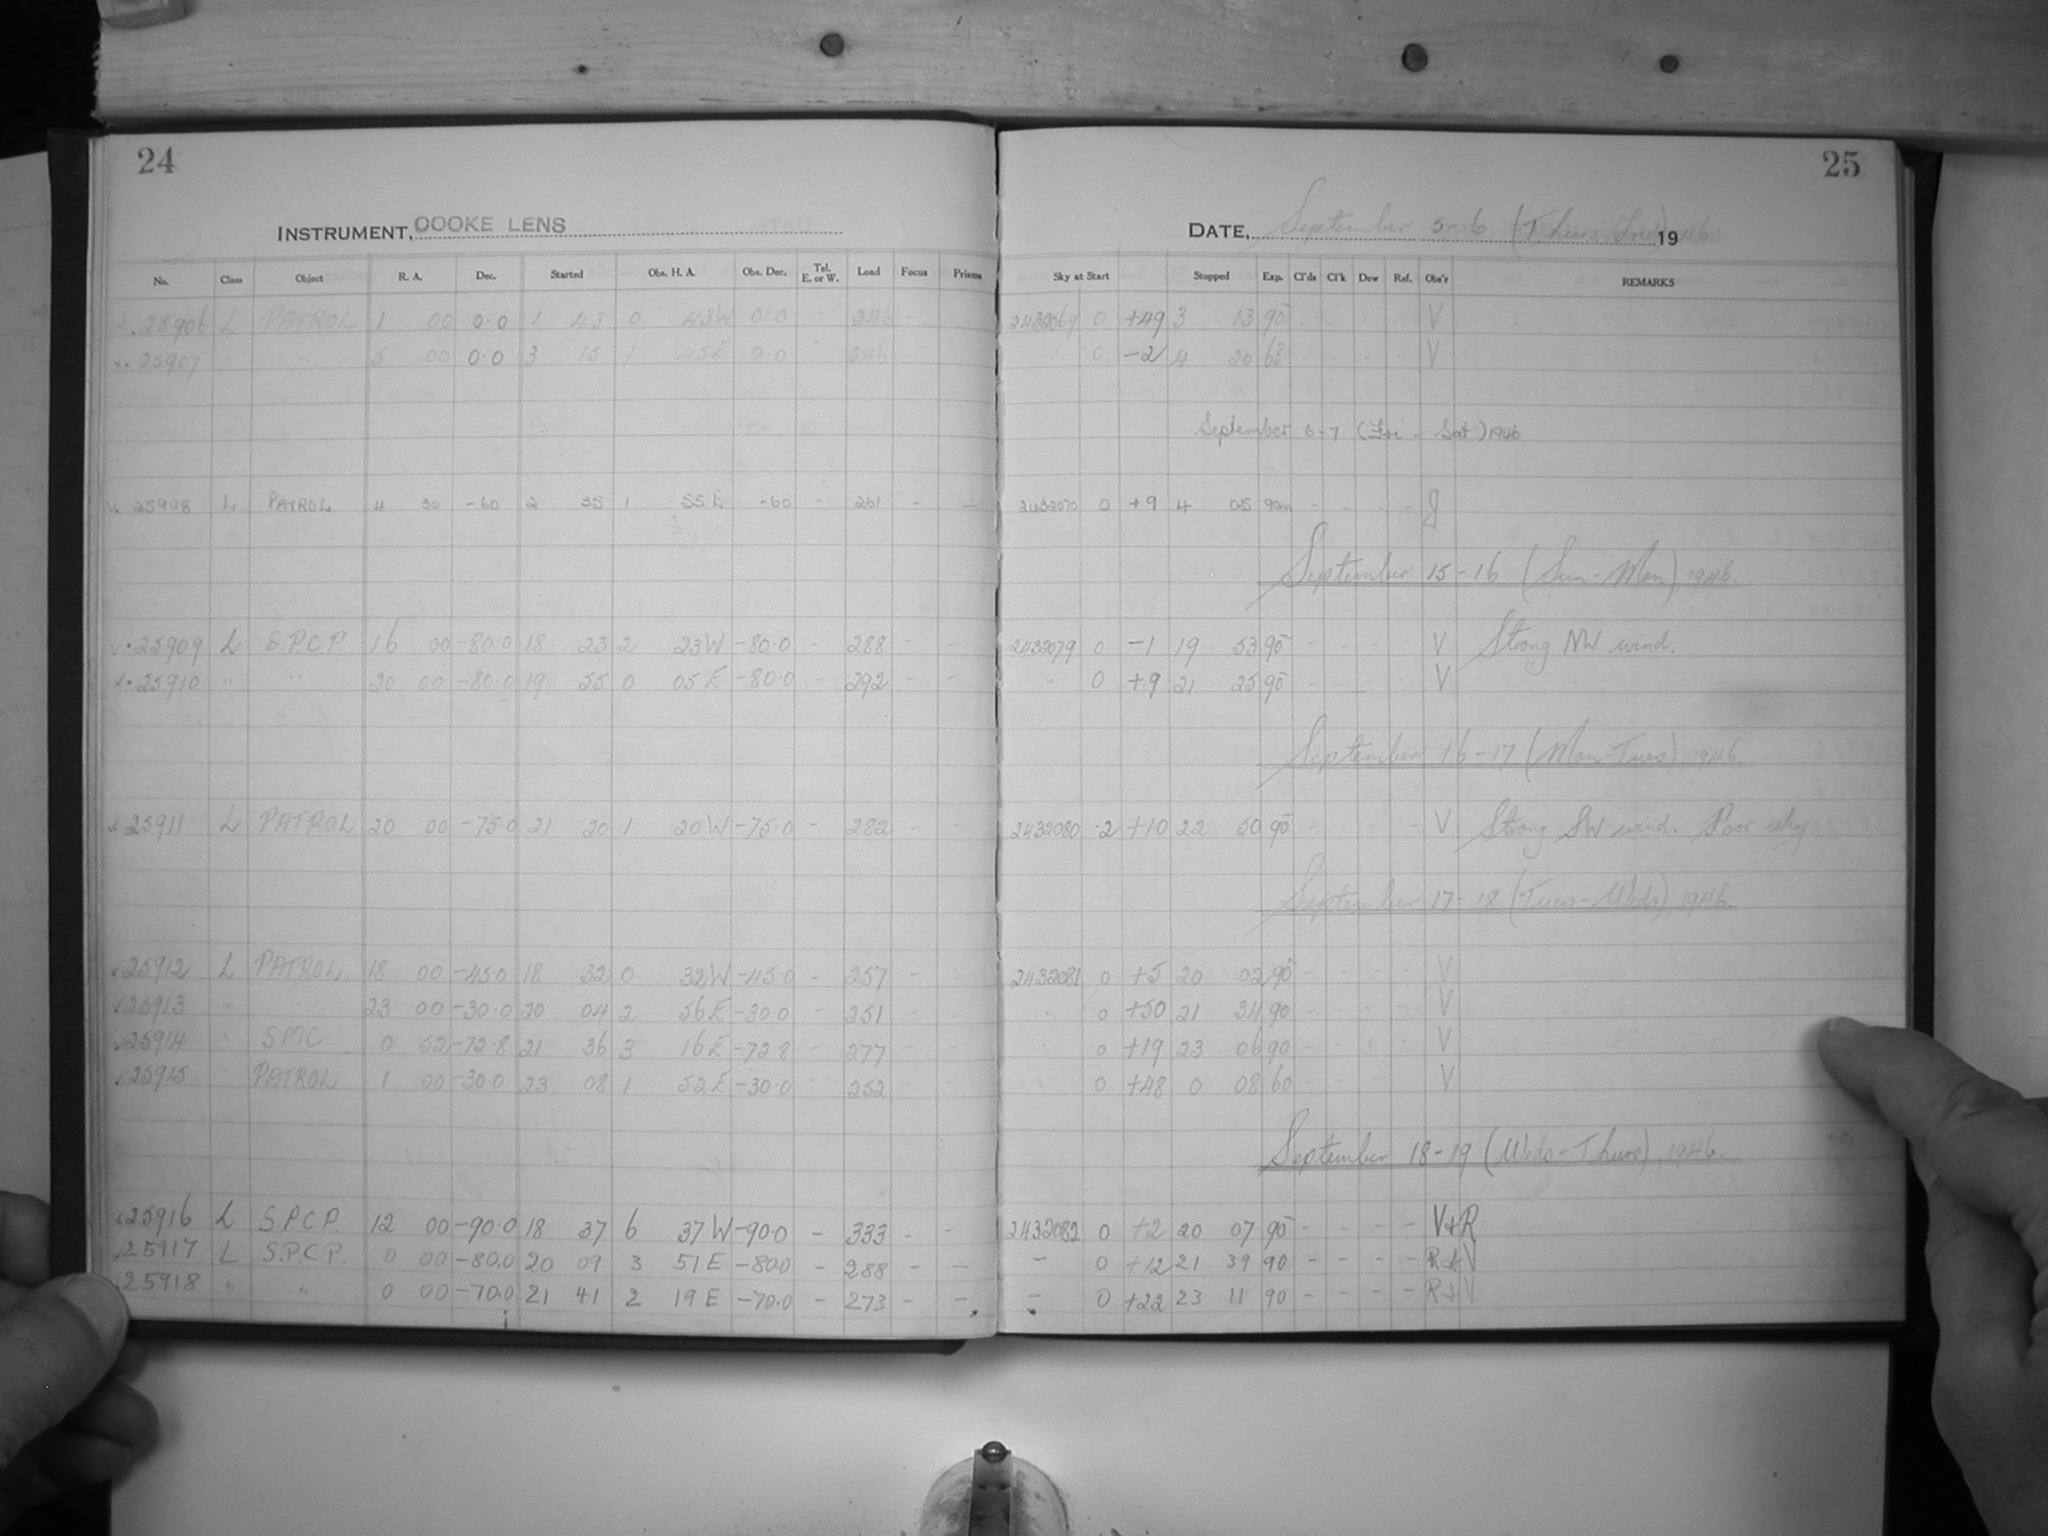 24
INSTRUMENT, COOKE LENS
No. Class Object R. A. Dec. Started Obs. H. A. Obs. Dec. Tel. E. or W. Load Focus Prisms
25906 L PATROL 1 00 0.0 1 43 0 43W 0.0 246 -
25907 " " 5 00 0.0 3 15 1 45E 0.0 246 -
25908 L PATROL 4 30 -60 2 35 1 55E -60 - 261 - -
25909 L S.P.C.P. 16 00 -80.0 18 23 2 23W -80.0 - 288 - -
25910 " " 20 00 -80.0 19 55 0 05E -80.0 - 292 - -
25911 L PATROL 20 00 -75.0 21 20 1 20W -75.0 - 282 - -
25912 L PATROL 18 00 -45.0 18 32 0 32W -45.0 - 257 -
25913 " " 23 00 -30.0 20 04 2 56E -30.0 - 251 -
25914 " SMC 0 52 -72.8 21 36 3 16E -72.8 - 277 -
25915 " PATROL 1 00 -30.0 23 08 1 52E -30.0 - 252 -
25916 L S.P.C.P. 12 00 -90.0 18 37 6 37W -90.0 - 333 - -
25917 L S.P.C.P. 0 00 -80.0 20 09 3 51E -80.0 - 288 - -
25918 " " 0 00 -70.0 21 41 2 19E -70.0 - 273 - -
25
DATE, September 5-6 (Thurs-Frid) 1946.
Sky at Start Stopped Exp. Cl'ds Cl'k Dew Ref. Obs'r REMARKS
2432069 0 +49 3 13 90 - - - - V
" 0 -2 4 20 65 - - - - V
September 6-7 (Fri - Sat) 1946
2432070 0 +9 4 05 90m - - - - J
September 15-16 (Sun-Mon), 1946.
2432079 0 -1 19 53 90 - - - - V Strong NW wind.
" 0 +9 21 25 90 - - - - V
September 16-17 (Mon-Tues), 1946.
2432080 2 +10 22 50 90 - - - - V Strong SW wind. Poor sky
September 17-18 (Tues-Weds), 1946.
2432081 0 +5 20 02 90 - - - - V
" 0 +50 21 34 90 - - - - V
" 0 +19 23 06 90 - - - - V
" 0 +48 0 08 60 - - - - V
September 18-19 (Weds-Thurs), 1946.
2432082 0 +2 20 07 90 - - - - V+R
- 0 +12 21 39 90 - - - - R+V
- 0 +22 23 11 90 - - - - R+V